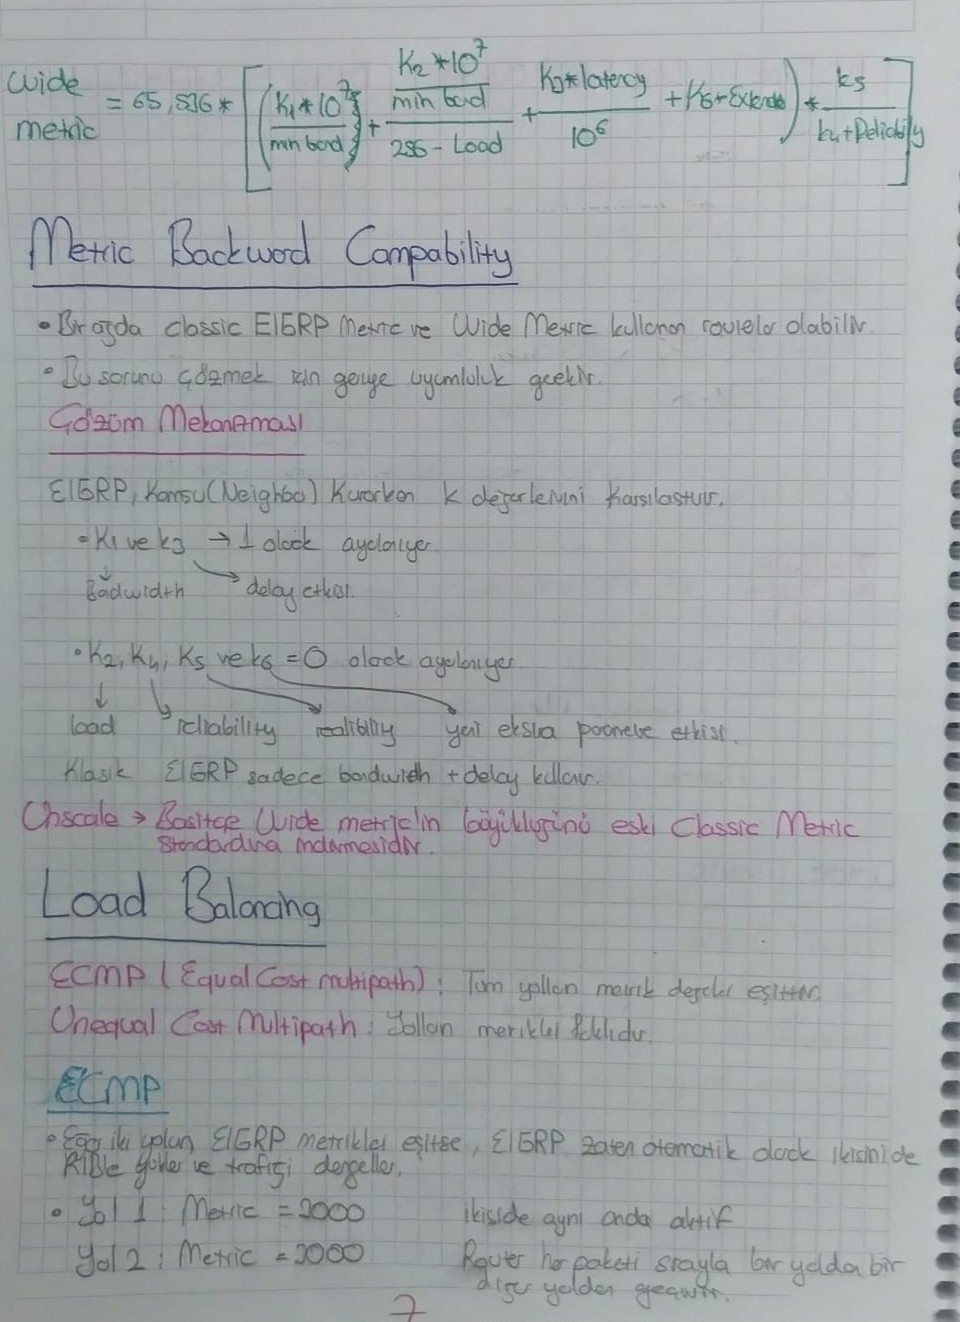 Wide metric = 65,536 * [ ( (K1*10^7 / min band) + (K2*10^7 / min band) / 256 - Load + K3*latency / 10^6 + K6*Extende ) * k5 / k4+Reliability ]
Metric Backword Compability
• Bir ağda classic EIGRP Metric ve Wide Metric kullanan routelar olabilir.
• Bu sorunu çözmek için geriye uyumluluk gerekir.
Çözüm Mekanizması
EIGRP, Komşu(Neighbo) Kurarken k değerlerini karşılaştırır.
• K1 ve k3 → 1 olarak ayarlanıyor
Badwidth → delay etkisi.
• K2, K4, K5 ve k6 = 0 olarak ayarlanıyor
load reliability realiblity yeni ekstra parametre etkisi.
Klasik EIGRP sadece bandwidth + delay kullanır.
Unscale → Basitçe Wide metriclerin büyüklüğünü eski Classic Metric
standardına indirmesidir.
Load Balancing
ECMP (Equal Cost multipath) : Tüm yolların metrik değerleri eşittir.
Unequal Cost Multipath : Yolların metrikleri farklıdır.
ECMP
• Eğer iki yolun, EIGRP metrikleri eşitse, EIGRP zaten otomatik olarak ikisinide
RIBle yükler ve trafiği dengeller.
• Yol 1 : Metric = 2000 ikiside aynı anda aktif
Yol 2 : Metric = 2000 Router her paketi sırayla bir yolda bir
diğer yoldan geçirir.
7